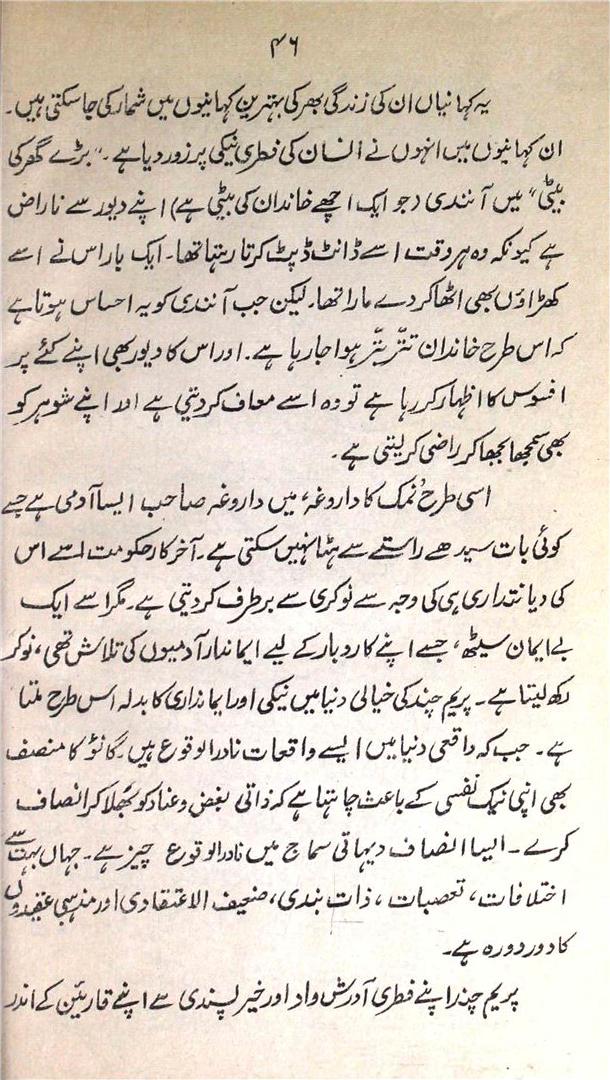 ۴۶
یہ کہانیاں ان کی زندگی بھر کی بہترین کہانیوں میں شمار کی جا سکتی ہیں۔
ان کہانیوں میں انہوں نے انسان کی فطری نیکی پر زور دیا ہے۔ "بڑے گھر کی
بیٹی" میں آنندی (جو ایک اچھے خاندان کی بیٹی ہے) اپنے دیور سے ناراض
ہے کیونکہ وہ ہر وقت اسے ڈانٹ ڈپٹ کرتا رہتا تھا۔ ایک بار اس نے اسے
کھڑاؤں بھی اٹھا کر دے مارا تھا۔ لیکن جب آنندی کو یہ احساس ہوتا ہے
کہ اس طرح خاندان تتّر بتّر ہوا جا رہا ہے۔ اور اس کا دیور بھی اپنے کئے پر
افسوس کا اظہار کر رہا ہے تو وہ اسے معاف کر دیتی ہے اور اپنے شوہر کو
بھی سمجھا بجھا کر راضی کر لیتی ہے۔
اسی طرح 'نمک کا داروغہ' میں داروغہ صاحب ایسا آدمی ہے جسے
کوئی بات سیدھے راستے سے ہٹا نہیں سکتی ہے۔ آخر کار حکومت اسے اس
کی دیانتداری ہی کی وجہ سے نوکری سے برطرف کر دیتی ہے۔ مگر اسے ایک
بے ایمان سیٹھ، جسے اپنے کاروبار کے لیے ایماندار آدمیوں کی تلاش تھی، نوکر
رکھ لیتا ہے۔ پریم چند کی خیالی دنیا میں نیکی اور ایمانداری کا بدلہ اس طرح ملتا
ہے۔ جب کہ واقعی دنیا میں ایسے واقعات نادر الوقوع ہیں۔ گانؤ کا منصف
بھی اپنی نیک نفسی کے باعث چاہتا ہے کہ ذاتی بغض و عناد کو بھلا کر انصاف
کرے۔ ایسا انصاف دیہاتی سماج میں نادر الوقوع چیز ہے۔ جہاں بہت سے
اختلافات، تعصبات، ذات بندی، ضعیف الاعتقادی اور مذہبی عقیدوں
کا دور دورہ ہے۔
پریم چند اپنے فطری آدرش واد اور خیر پسندی سے اپنے قارئین کے اندر